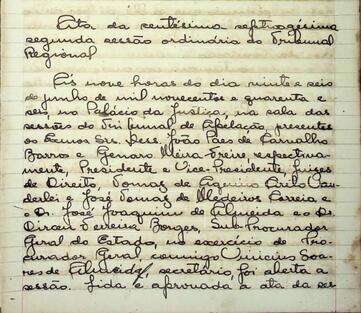 Ata da sentésima septuagésima
segunda sessão ordinária do Tribunal
Regional
Ás nove horas do dia vinte e seis
de junho de mil novecentos e quarenta e
seis, no Palácio da Justiça, na sala das
sessões do Tribunal de Apelação, presentes
os Exmos Srs. Dess João Paes de Carvalho
Barro e Genaro Meira Freire, respectiva
mente, Presidente e Vice-Presidente, Juizes
de Direito, Tomaz de Aquino Cirilo Van
derlei e José Tomaz de Medeiros Correia e
o Dr. José Joaquim de Almeida e o Dr.
Dirceu Ferreira Borges, Sub-Procurador
Geral do Estado, no exercício de Pro-
curador Geral, comigo Vinicius Soa-
res de Almeida, secretário, foi aberta a
sessão. Lida e aprovada a ata da ses